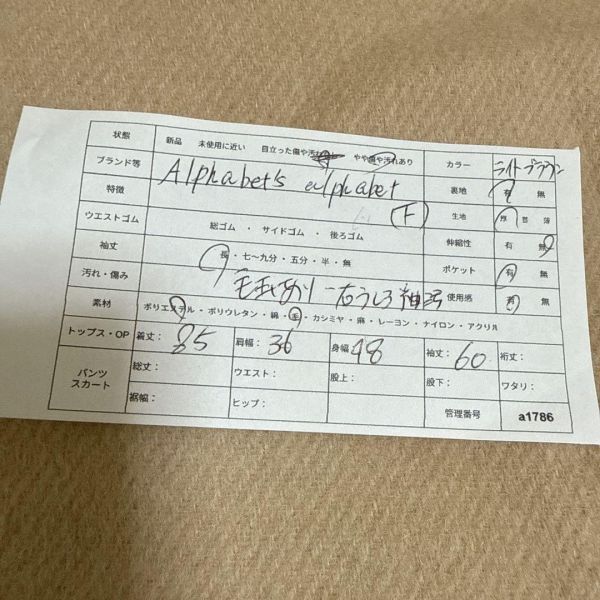 状態 新品 未使用に近い 目立った傷や汚れなし やや傷や汚れあり カラー ライトブラウン
ブランド等 Alphabet's alphabet 裏地 有 無
特徴 F 生地 厚 普 薄
ウエストゴム 総ゴム ・ サイドゴム ・ 後ろゴム 伸縮性 有 無
袖丈 長・七〜九分・五分・半・無 ポケット 有 無
汚れ・傷み 毛玉あり 右うしろ袖汚 使用感 有 無
素材 ポリエステル・ポリウレタン・綿・毛・カシミヤ・麻・レーヨン・ナイロン・アクリル
トップス・OP 着丈: 85 肩幅: 36 身幅: 48 袖丈: 60 裄丈:
パンツ スカート 総丈: ウエスト: 股上: 股下: ワタリ:
裾幅: ヒップ: 管理番号 a1786